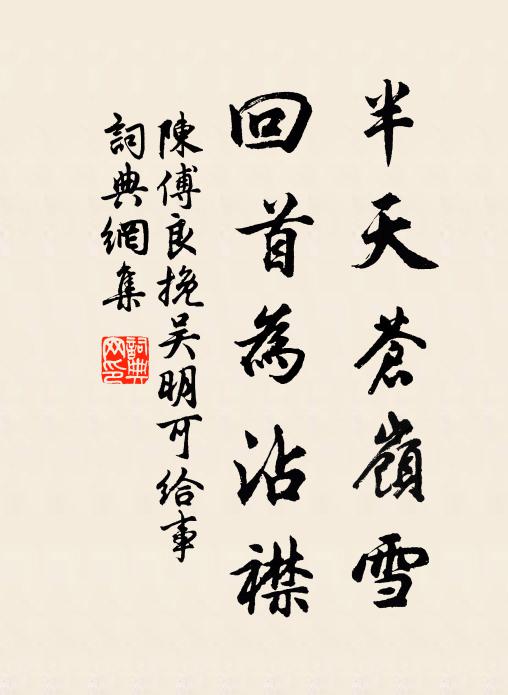 半天蒼嶺雪
回首為沾襟
陳傅良挽吳明可給事
詞典網集
詞典網印